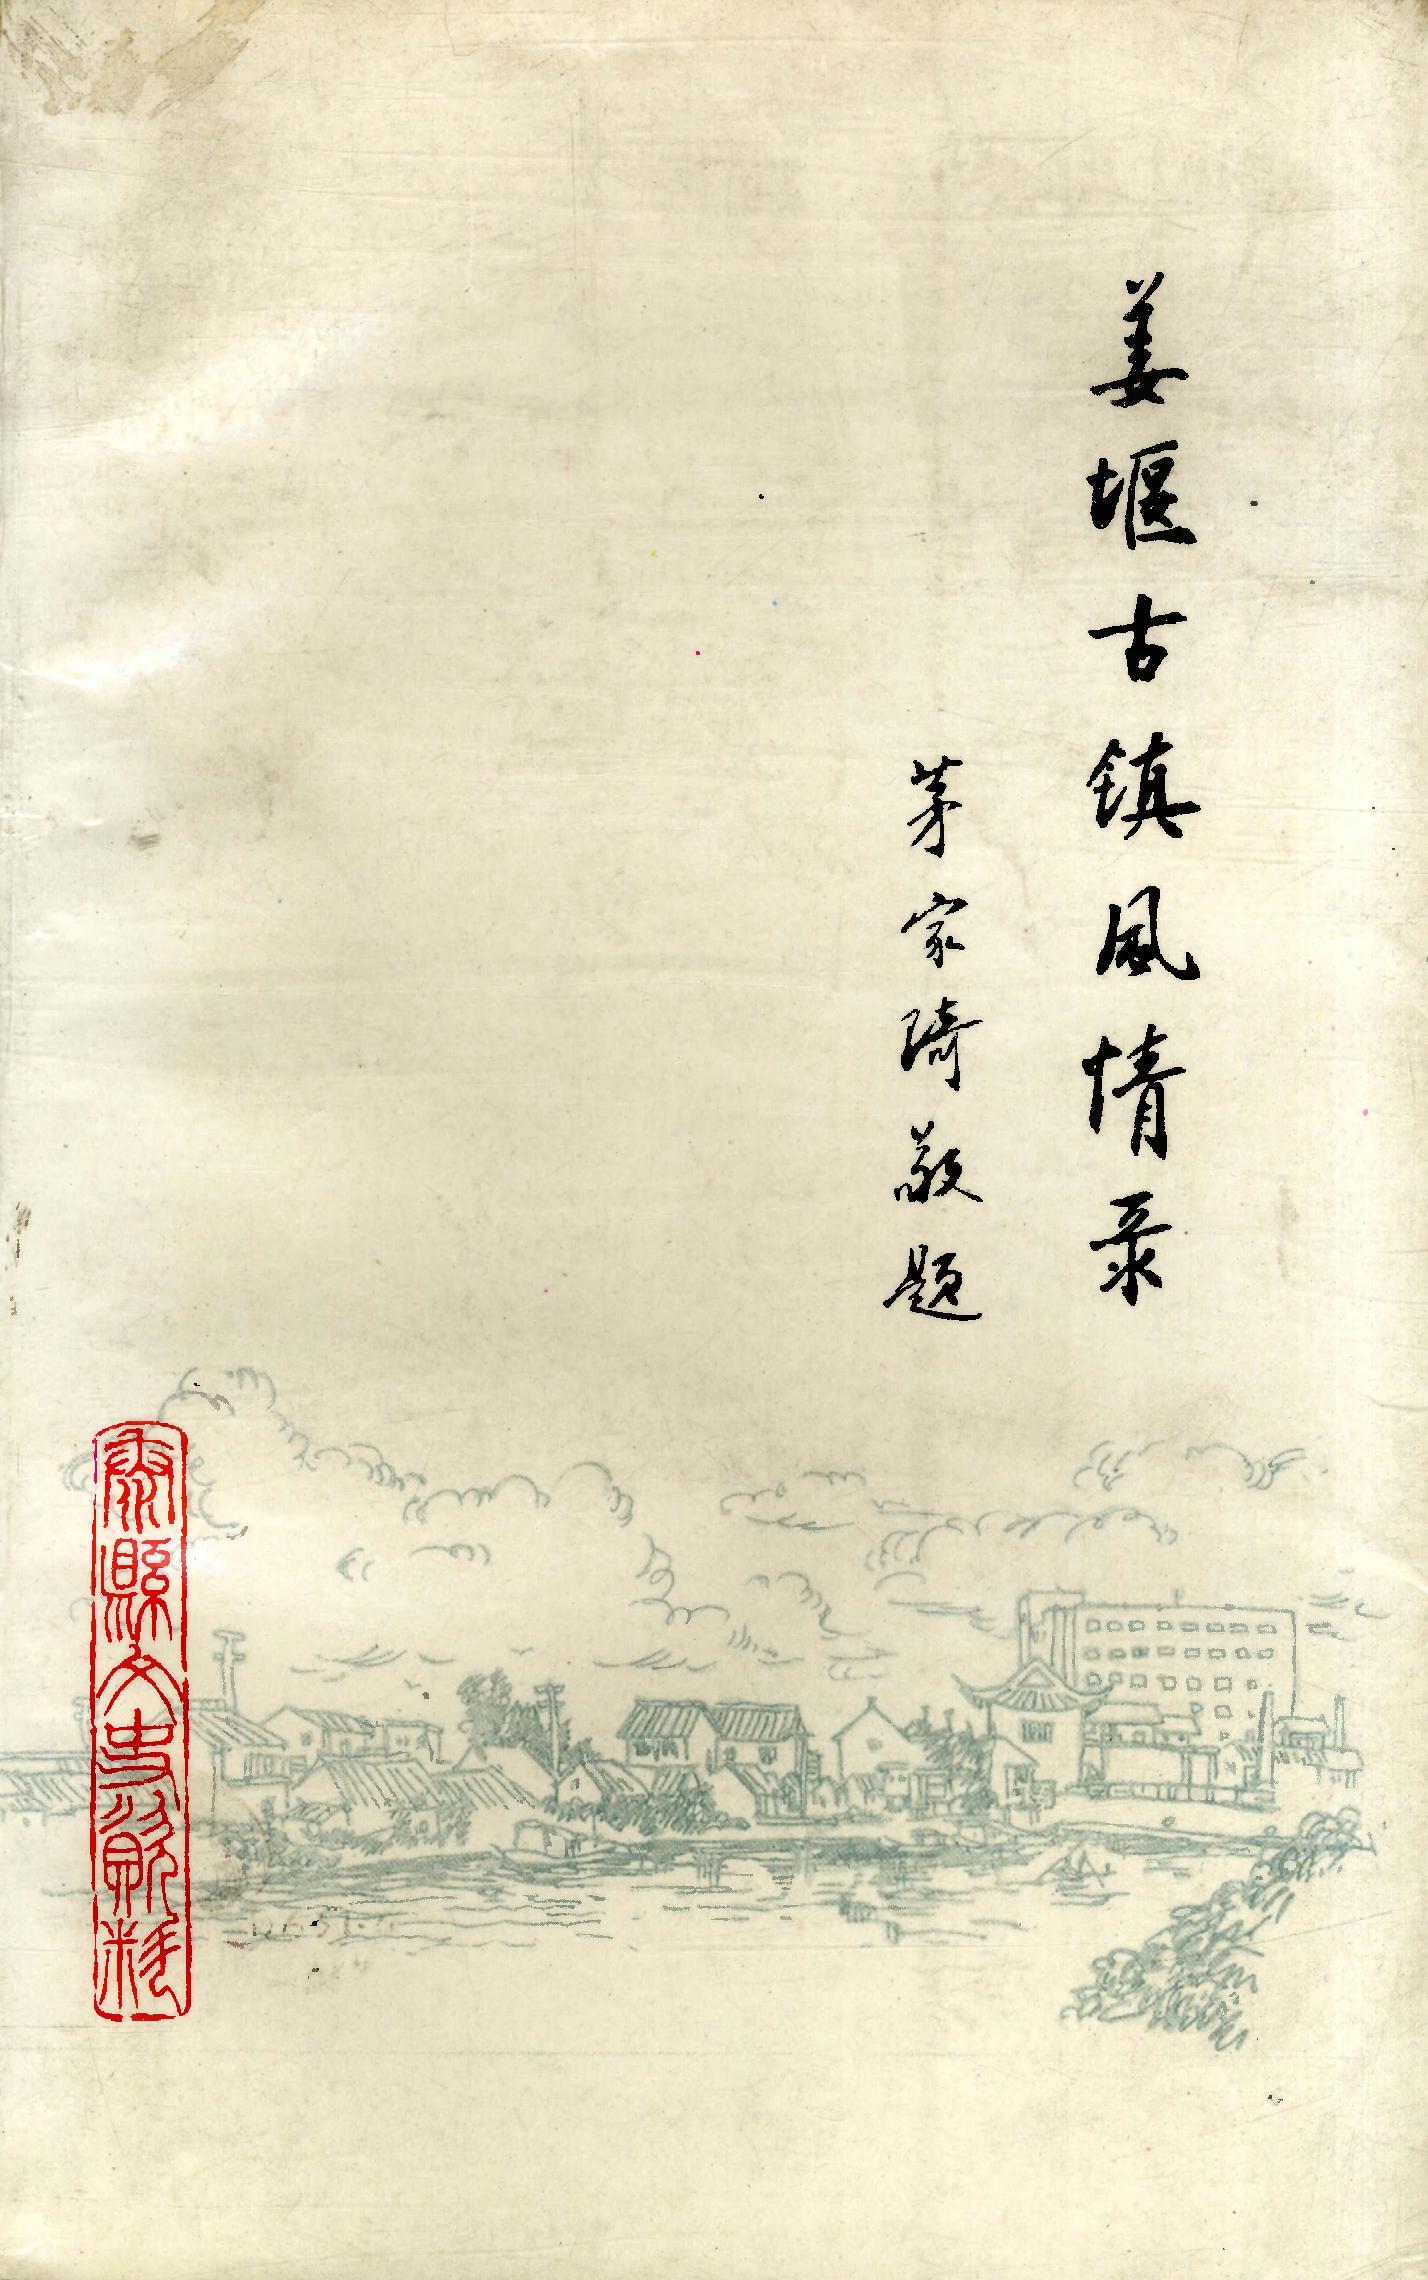 姜堰古镇风情录
茅家琦敬题
泰縣文史資料